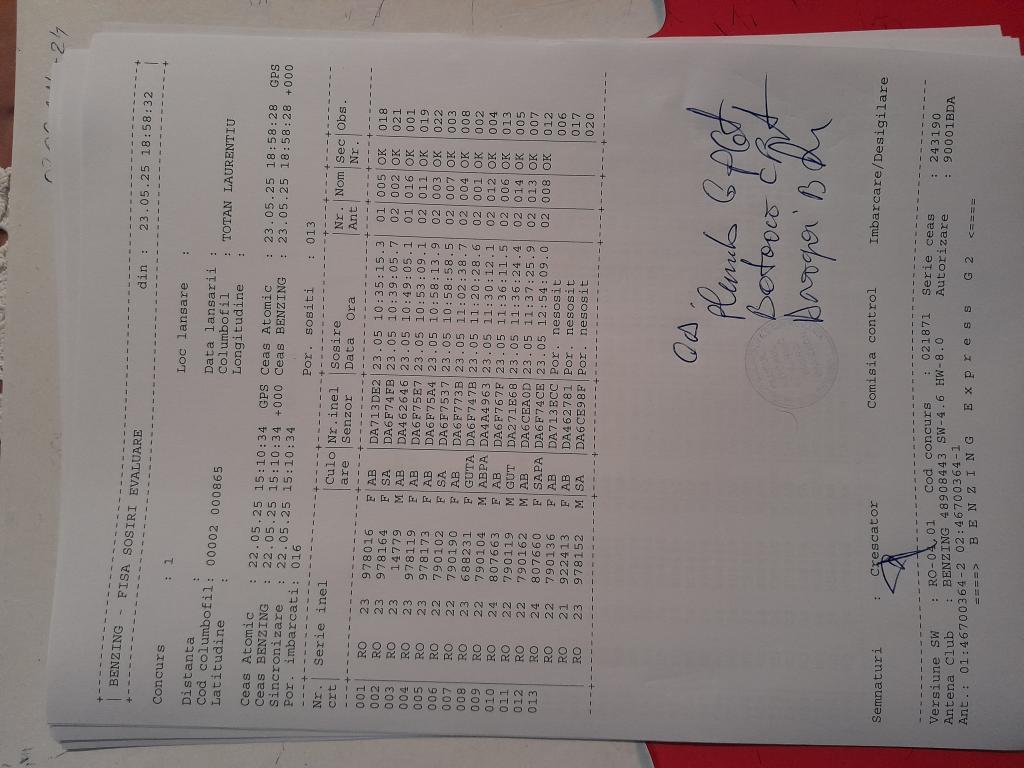 BENZING - FISA SOSIRI EVALUARE din : 23.05.25 18:58:32
Concurs : 1
Distanta : Loc lansare :
Cod columbofil: 00002 000865 Data lansarii :
Latitudine : Columbofil : TOTAN LAURENTIU
Longitudine :
Ceas Atomic : 22.05.25 15:10:34 GPS Ceas Atomic : 23.05.25 18:58:28 GPS
Ceas BENZING : 22.05.25 15:10:34 +000 Ceas BENZING : 23.05.25 18:58:28 +000
Sincronizare : 22.05.25 15:10:34
Por. imbarcati: 016 Por. sositi : 013
Nr. | Serie inel | Culo | Nr.inel | Sosire | Nr. | Nom | Sec | Obs.
crt | are | Senzor | Data Ora | Ant | Nr.
001 RO 23 978016 F AB DA713DE2 23.05 10:35:15.3 01 005 OK 018
002 RO 23 978164 F SA DA6F74FB 23.05 10:39:05.7 02 002 OK 021
003 RO 23 14779 M AB DA462646 23.05 10:49:05.1 01 016 OK 001
004 RO 23 978119 F AB DA6F75E7 23.05 10:53:09.1 02 011 OK 019
005 RO 23 978173 F AB DA6F75A4 23.05 10:58:13.9 02 003 OK 022
006 RO 22 790102 F SA DA6F7537 23.05 10:58:58.5 02 007 OK 003
007 RO 22 790190 F AB DA6F773B 23.05 11:02:38.7 02 004 OK 008
008 RO 23 688231 F GUTA DA6F747B 23.05 11:20:28.6 02 001 OK 002
009 RO 22 790104 M ABPA DA4A4963 23.05 11:30:12.1 02 012 OK 004
010 RO 24 807663 F AB DA6F767F 23.05 11:36:11.5 02 006 OK 013
011 RO 22 790119 M GUT DA271E68 23.05 11:36:24.4 02 014 OK 005
012 RO 22 790162 M AB DA6CEA0D 23.05 11:37:25.9 02 013 OK 007
013 RO 24 807660 F SAPA DA6F74CE 23.05 12:54:09.0 02 008 OK 012
RO 22 790136 F AB DA713ECC Por. nesosit 006
RO 21 922413 F AB DA462781 Por. nesosit 017
RO 23 978152 M SA DA6CE98F Por. nesosit 020
Semnaturi : Crescator Comisia control Imbarcare/Desigilare
Versiune SW : RO-04.01 Cod concurs : 021871 Serie ceas : 243190
Antena Club : BENZING 48908443 SW-4.6 HW-8.0 Autorizare : 90001BDA
Ant.: 01:46700364-2 02:46700364-1
====> B E N Z I N G E x p r e s s G 2 <====